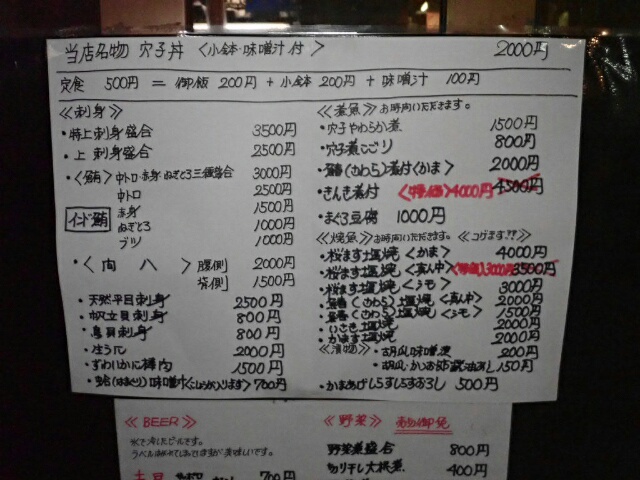 当店名物 穴子丼 <小鉢・味噌汁付> 2000円
定食 500円 = 御飯 200円 + 小鉢 200円 + 味噌汁 100円
≪刺身≫
・特上刺身盛合 3500円
・上刺身盛合 2500円
・<鮪> 中トロ・赤身・ねぎとろ三種盛合 3000円
中トロ 2500円
インド鮪 赤身 1500円
ねぎとろ 1000円
ブツ 1000円
・< 向八 > 腹側 2000円
背側 1500円
・天然平目刺身 2500円
・帆立貝刺身 800円
・鳥貝刺身 800円
・生うに 2000円
・ずわいかに棒肉 1500円
・蛤(はまぐり)味噌汁<こしょうが入ります> 700円
≪煮魚≫お時間いただきます。
・穴子やわらか煮 1500円
・穴子煮こごり 800円
・(さわら)煮付<かま> 2000円
・きんき煮付 <特価>4000円 4500円
・まぐろ豆腐 1000円
≪焼魚≫お時間いただきます。 ≪コゲます!?≫
・桜ます塩焼<かま> 4000円
・桜ます塩焼<真ん中> <特価>3000円 3500円
・桜ます塩焼<シモ> 3000円
・(さわら)塩焼<真ん中> 2000円
・(さわら)塩焼<シモ> 1500円
・いさき塩焼 2000円
・かます塩焼 2000円
≪漬物≫ ・胡瓜味噌漬 200円
・胡瓜・かつお節醤油おし 150円
・かまあげしらすしらすおろし 500円
≪BEER≫
氷で冷したビールです。
ラベルはがれてしまってますが美味しいです。
700円
≪野菜≫
野菜煮盛合 800円
切り干し大根煮 400円